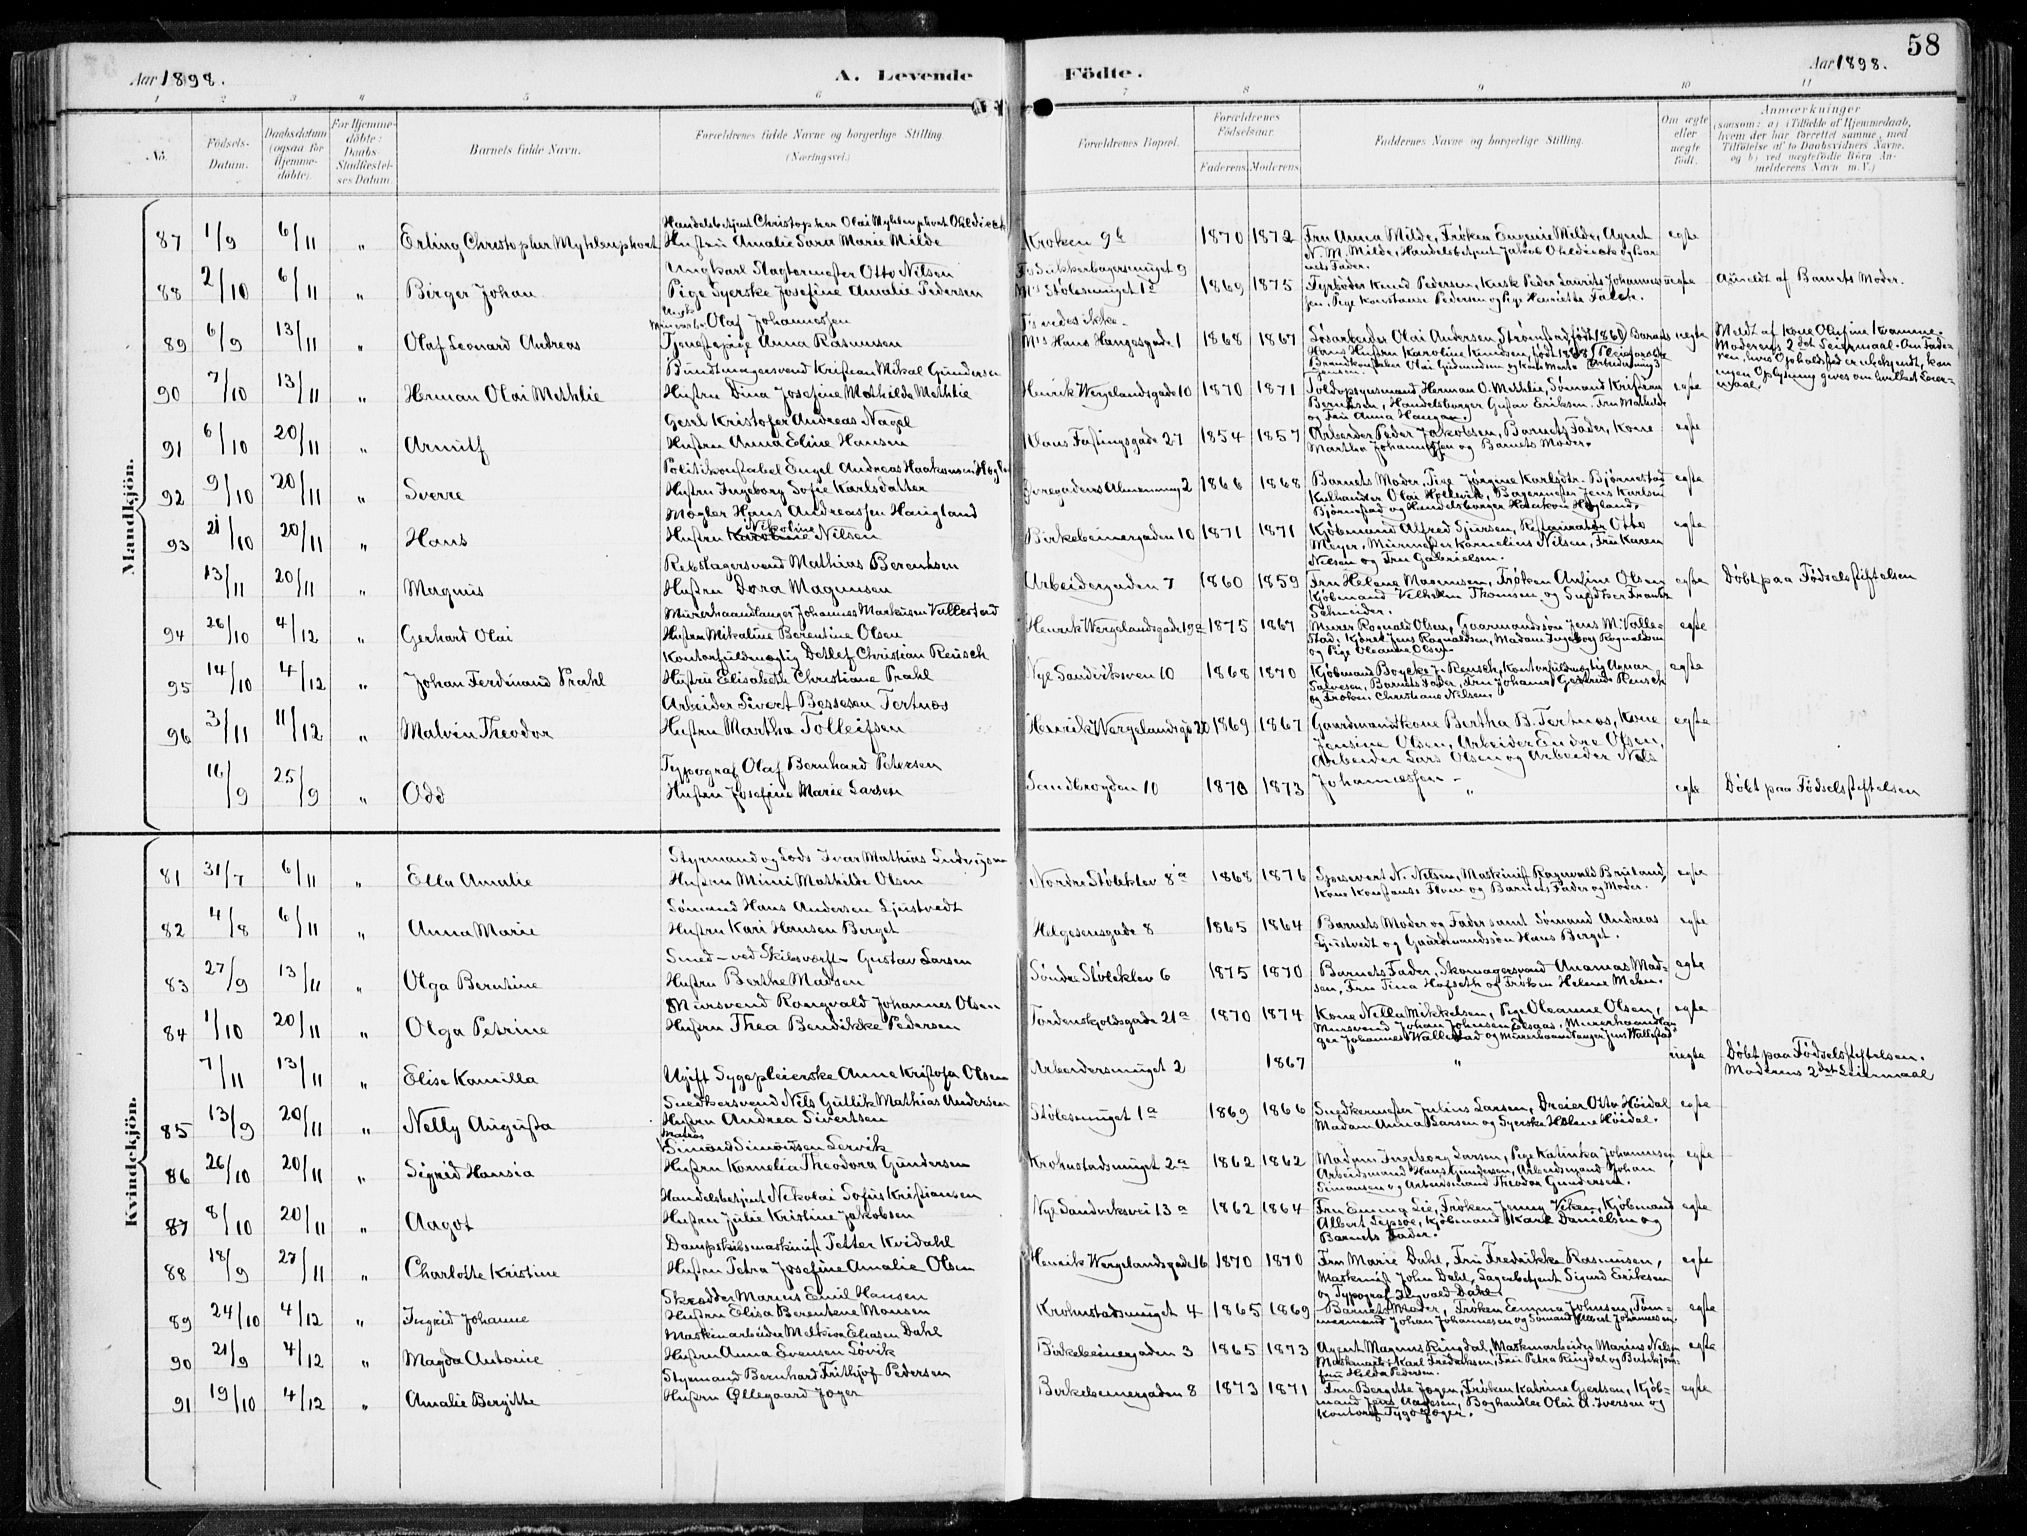 58
Aar 1898. A. Levende Födte. Aar 1898.
1 2 3 4 5 6 7 8 9 10 11
No. Födsels-Datum. Daabsdatum (ogsaa for Hjemme-döbte). For Hjemme-döbte: Daabs-Stadfæstel-ses Datum. Barnets fulde Navn. Forældrenes fulde Navne og borgerlige Stilling (Næringsvei.) Forældrenes Bopæl. Forældrenes Födselsaar. Faderens Moderens Faddernes Navne og borgerlige Stilling. Om ægte eller uægte födt. Anmærkninger (saasom: a) i Tilfælde af Hjemmedaab, hvem der har forrettet samme, med Tilföielse af to Daabsvidners Navne, og b) ved uægtefödte Börn An-melderens Navn m.V.)
Mandkjön.
Handelsbetjent Christopher Olai Myhlenphort
87 1/9 6/11 " Erling Christopher Myhlenphort Hustru Amalie Sara Marie Milde Kroken 9b 1870 1872 Fru Anna Milde, Frøken Eugenie Milde, Agent egte
N. M. Milde, Handelsbetjent Jakob
nets Fader.
Ungkarl Slagtermester Otto Nilsen 9
88 2/10 6/11 " Birger Johan Pige Syerske Josefine Amalie Pedersen Ms Stølesmuget 1a 1869 1875 Fyrbøder Knud Pedersen, Kusk Peder Laurits Johannes- uegte Anmeldt af Barnets Moder.
sen, Pige Konstanse Pedersen og Pige Henriette Falch.
Olaf Johannessen Fs vides ikke
89 6/9 13/11 " Olaf Leonard Andreas Tjenestepige Anna Rasmussen Ms Hans Haugesgade 1 1868 1867 Løsarbeider Olai Andersen Strømstad, født 1860, Barnets uegte Meldt af Kone Olufine Kvamme.
Hans Hustru Karoline Knudsen, født 1868 Moderens 2det Leiermaal. Om Fade-
ren, hvis Opholdssted er ubekjendt, kan
Brandkonstabel Olai Gudmundsen ingen Oplysning gives om hvilket Leier-
maal.
Bundtmagersvend Kristian Mikal Gundersen
90 7/10 13/11 " Herman Olai Methlie Hustru Dina Josefine Mathilde Methlie Henrik Wergelandsgade 10 1870 1871 Toldopsynsmand Herman O. Methlie, Sømand Kristian egte
Berntsen, Handelsborger Gustav Eriksen, Fru Mathilde
og Fru Anna Haugan.
Gesel Kristofer Andreas Nagel
91 6/10 20/11 " Arnulf Hustru Anna Eline Hansen Klaus Fastingsgade 27 1854 1857 Arbeider Peder Jakobsen, Barnets Fader, Kone egte
Martha Johannessen og Barnets Moder.
Politikonstabel Engel Andreas Haakonsen
92 9/10 20/11 " Sverre Hustru Ingeborg Sofie Karlsdatter Øvregadens Almenning 2 1866 1868 Barnets Moder, Pige Jørgine Karlsdtr. Bjørnestad egte
Kulhandler Olai Hellevik, Bagermester Jens Karlsen
Bjørnestad og Handelsborger Haakon Høgland.
Mægler Hans Andreassen Haugland
Nikoline
93 21/10 20/11 " Hans Hustru Karoline Nilsen Birkebeinergaden 10 1871 1871 Kjøbmand Alfred Sjursen, Restauratør Otto egte
Meyer, Murmester Kornelius Nilsen, Fru Karen
Nilsen og Fru Gabrielsen.
Rebslagersvend Mathias Berentsen
13/11 20/11 " Magnus Hustru Dora Magnusen Arbeidergaden 7 1860 1859 Fru Helene Marensen, Frøken Antine Olsen egte Døbt paa Fødselsstiftelsen
Kjøbmand Vilhelm Thomsen og
Schneider.
Murerhaandlanger Johannes Markusen Vallestad
94 26/10 4/12 " Gerhard Olai Hustru Mikaline Berentine Olsen Henrik Wergelandsgade 19a 1875 1867 Murer Ragnald Olsen, Gaarmandssøn Jens M. Valle- egte
stad, Jens Ragnaldsen, Madam Ingeborg Ragnaldsen
og Pige Oleanna Olsen.
Kontorfuldmægtig Detlef Christian Reusch
95 14/10 4/12 " Johan Ferdinand Prahl Hustru Elisabeth Christiane Prahl Nye Sandviksven 10 1868 1870 Kjøbmand Boycke J. Reusch, Kontorfuldmægtig Agnar egte
Salvesen, Barnets Fader, Fru Johanne Gertrude Reusch
og Frøken Christiane Nilsen.
Arbeider Sivert Bessesen Tertnæs
96 3/11 11/12 " Malvin Theodor Hustru Martha Tolleifsen Henrik Wergelandsg. 20 1869 1867 Gaardmandskone Bertha B. Tertnæs, Kone egte
Jensine Olsen, Arbeider Endre Olsen,
Arbeider Lars Olsen og Arbeider Nels
Typograf Olaf Bernhard Petersen Johannessen
16/9 25/9 " Odd Hustru Josefine Marie Larsen Sandbrogden 10 1870 1873 " egte Døbt paa Fødselsstiftelsen
Kvindekjön.
Styrmand og Lods Ivar Mathias Ludvigsen
81 31/7 6/11 " Ella Amalie Hustru Mimi Mathilde Olsen Nordre Støleklev 8a 1868 1876 N. Nilsen, Maskinist Ragnvald Brisland, egte
Kone Konstanse Floen og Barnets Fader og Moder.
Sømand Hans Andersen Ljustvedt
82 4/8 6/11 " Anna Marie Hustru Kari Hansen Berget Helgesensgade 8 1865 1864 Barnets Moder og Fader samt Sømand Andreas egte
Ljustvedt og Gaardmandssøn Hans Berget.
Smed - ved Skibsværft - Gustav Larsen
83 27/9 13/11 " Olga Berntine Hustru Berthe Madsen Søndre Støleklev 6 1875 1870 Barnets Fader, Skomagersvend Ananias Mad- egte
sen, Fru Tina Hofseth og Frøken Helene Mehn.
Mursvend Rangvald Johannes Olsen
84 1/10 20/11 " Olga Petrine Hustru Thea Bendikke Pedersen Tordenskjoldsgade 21a 1870 1874 Kone Nella Mikkelsen, Pige Oleanne Olsen, egte
Mursvend Johan Johnsen Eilsaas, Murerhaandlan-
ger Johannes Wallestad og Murerhaandlanger Jens Wallestad
7/11 13/11 " Elise Kamilla Ugift Sygepleierske Anne Kristofa Olsen Arbeidersmuget 2 1867 " uegte Døbt paa Fødselsstiftelsen.
Moderens 2det Leiermaal
Snedkersvend Nils Gullik Mathias Andersen
85 13/9 20/11 " Nelly Augusta Hustru Andrea Sivertsen Stølesmuget 1a 1869 1866 Snedkermester Julius Larsen, Dreier Otto Høidal egte
Madam Anna Larsen og Syerske Helene Høidal.
Matros
Simond Simonsen Lervik
86 26/10 20/11 " Sigrid Hansia Hustru Kornelia Theodora Gundersen Krohnstadsmuget 2a 1862 1862 Madam Ingeborg Larsen, Pige Katinka Johannesen, egte
Arbeidsmand Hans Gundersen, Arbeidsmand Johan
Simonsen og Arbeidsmand Theodor Gundersen.
Handelsbetjent Nikolai Sofus Kristiansen
87 8/10 20/11 " Aagot Hustru Julie Kristine Jakobsen Nye Sandviksvei 13a 1862 1864 Fru Emma Lie, Frøken Jenny Viken, Kjøbmand egte
Albert Lepsøe, Kjøbmand Karl Danielsen og
Barnets Fader.
Dampskibsmaskinist Petter Kvidahl
88 18/9 27/11 " Charlotte Kristine Hustru Petra Josefine Amalie Olsen Henrik Wergelandsgade 16 1870 1870 Fru Marie Dahl, Fru Fredrikke Rasmussen, egte
Maskinist John Dahl, Lagerbetjent Sigurd Eriksen
og Typograf Ingvald Dahl.
Skrædder Marius Emil Hansen
89 24/10 4/12 " Ingrid Johanne Hustru Elisa Berentine Monssen Krohnstadsmuget 4 1865 1869 Barnets Moder, Frøken Emma Johnsen, Tøm- egte
mermand Johan Johannesen og Sømand Johannesen.
Maskinarbeider Melkior Eliasen Dahl
90 21/9 4/12 " Magda Antonie Hustru Anna Evensen Løvik Birkebeinergaden 3 1865 1873 Agent Magnus Ringdal, Maskinarbeider Marius Nelsen egte
Karl Fredriksen, Fru Petra Ringdal og
Hilda Pedersen.
Styrmand Bernhard Frithjof Pedersen
91 19/10 4/12 " Amalie Bergitte Hustru Øllegaard Joger Birkebeinergaden 8 1873 1871 Fru Bergitte Jogen, Frøken Katrine Gjertsen, Kjøb- egte
mand Jens Aagesen, Boghandler Olai E. Iversen og
Kontorist Joger.